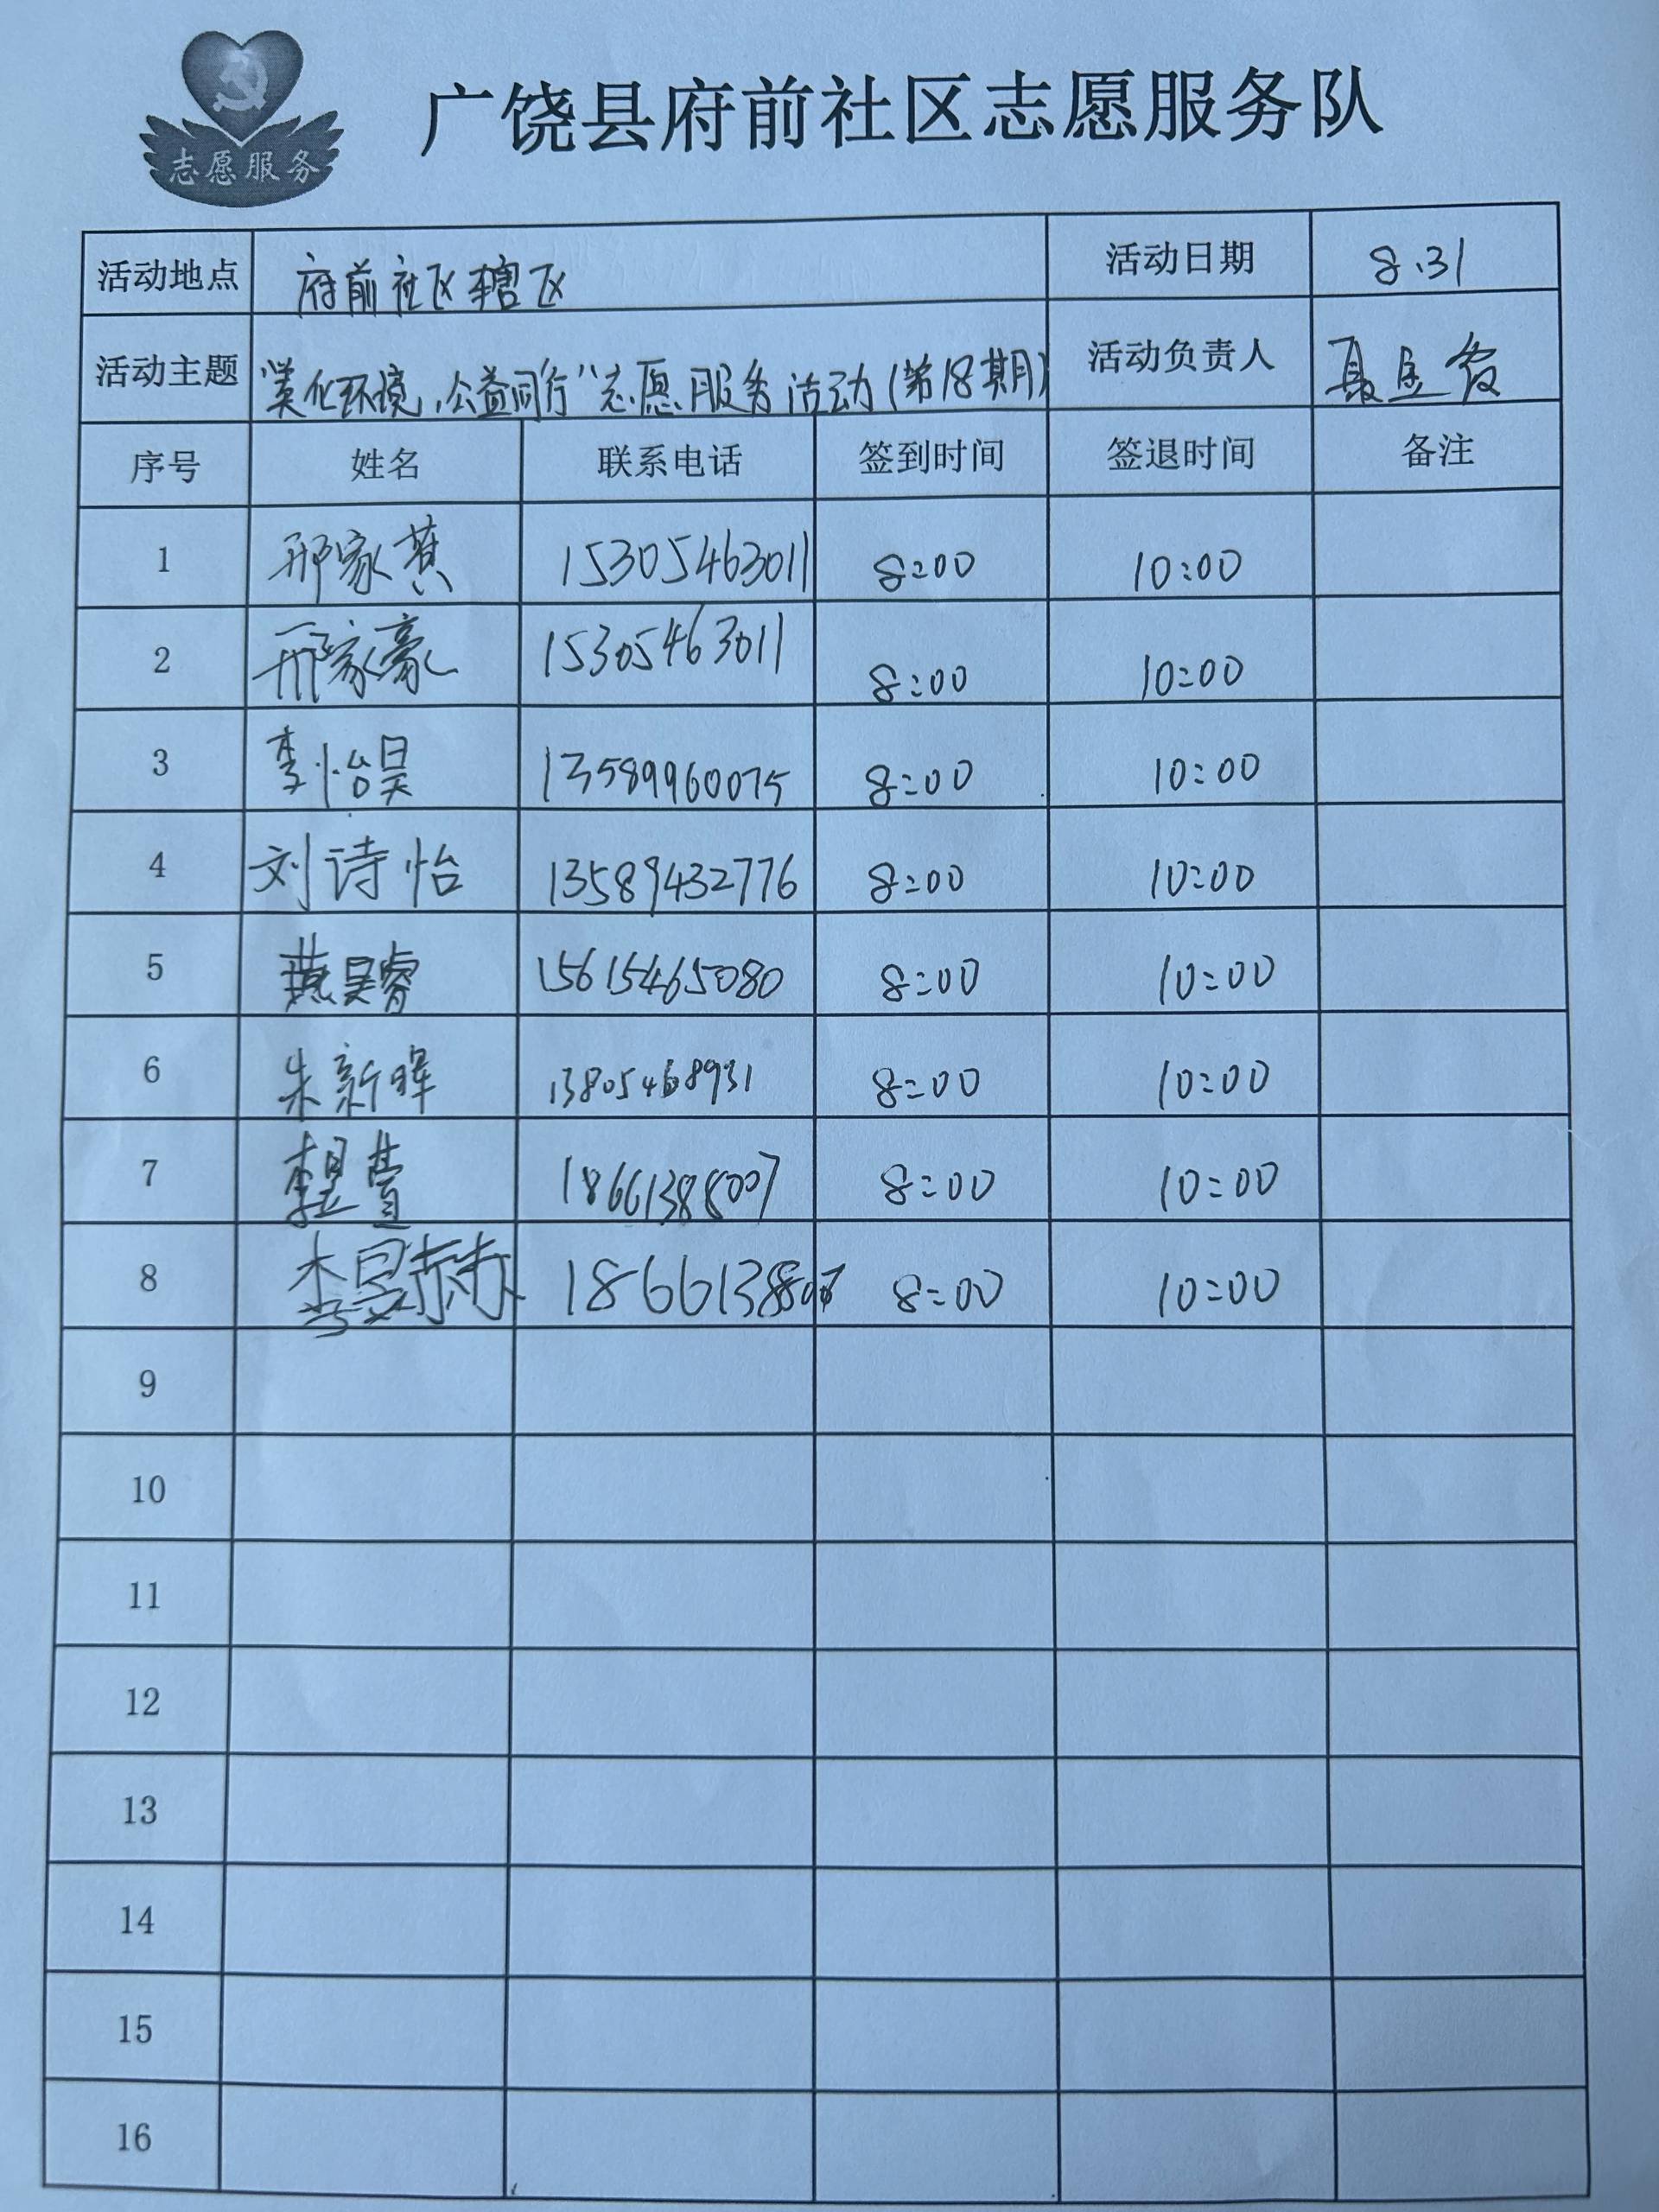 志愿服务
广饶县府前社区志愿服务队
活动地点 府前社区辖区 活动日期 8.31
活动主题 “美化环境,公益同行”志愿服务活动(第18期) 活动负责人
序号 姓名 联系电话 签到时间 签退时间 备注
1 邢家 15305463011 8:00 10:00
2 邢家豪 15305463011 8:00 10:00
3 李怡昊 13589960075 8:00 10:00
4 刘诗怡 13589432776 8:00 10:00
5 燕昊睿 15615465080 8:00 10:00
6 朱新晖 13805468931 8:00 10:00
7 18661388007 8:00 10:00
8 李昊赫 8:00 10:00
9
10
11
12
13
14
15
16